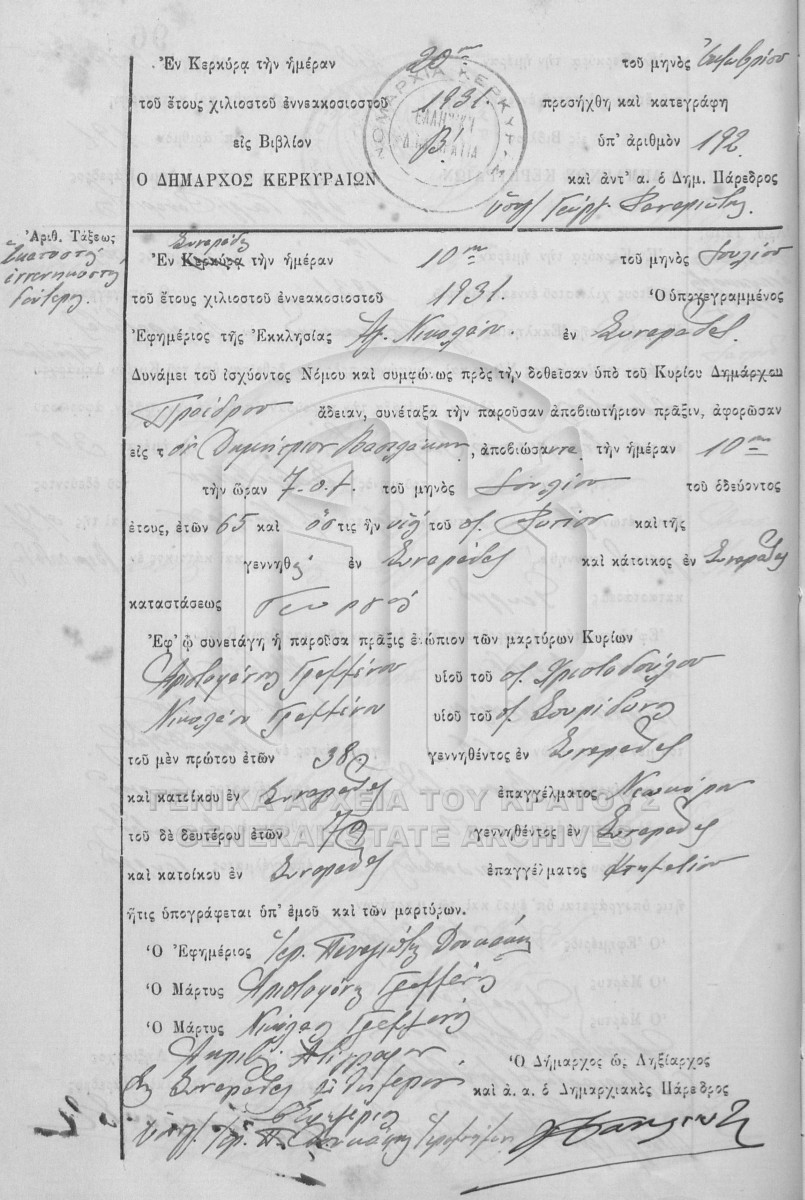 Ἐν Κερκύρᾳ τὴν ἡμέραν 20ην τοῦ μηνὸς Ὀκτωβρίου
τοῦ ἔτους χιλιοστοῦ ἐννεακοσιοστοῦ 1931. προσήχθη καὶ κατεγράφη
εἰς Βιβλίον Β! ὑπ' ἀριθμὸν 192
Ο ΔΗΜΑΡΧΟΣ ΚΕΡΚΥΡΑΙΩΝ καὶ ἀντ' α. ὁ Δημ. Πάρεδρος
ΝΟΜΑΡΧΙΑ ΚΕΡΚΥΡΑΣ
ΕΛΛΗΝΙΚΗ ΔΗΜΟΚΡΑΤΙΑ
Ἀριθ. Τάξεως
Ἑκατοστὴ
ἐννενηκοστὴ
δευτέρα.
Συναράδες
Ἐν Κερκύρᾳ τὴν ἡμέραν 10ην τοῦ μηνὸς Ἰουλίου
τοῦ ἔτους χιλιοστοῦ ἐννεακοσιοστοῦ 1931. Ὁ ὑπογεγραμμένος
Ἐφημέριος τῆς Ἐκκλησίας Ἁγ. Νικολάου. ἐν Συναράδες.
Δυνάμει τοῦ ἰσχύοντος Νόμου καὶ συμφώνως πρὸς τὴν δοθεῖσαν ὑπὸ τοῦ Κυρίου Δημάρχου
Προέδρου ἄδειαν, συνέταξα τὴν παροῦσαν ἀποβιωτήριον πρᾶξιν, ἀφορῶσαν
εἰς τ ὸν Δημήτριον Βασιλάκην, ἀποβιώσαντα τὴν ἡμέραν 10ην
τὴν ὥραν 7 τοῦ μηνὸς Ἰουλίου τοῦ ὁδεύοντος
ἔτους, ἐτῶν 65 καὶ ὅστις ἦν υἱὸς τοῦ Φωτίου καὶ τῆς
γεννηθεὶς ἐν Συναράδες καὶ κάτοικος ἐν Συναράδες
καταστάσεως Γεωργὸς
Ἐφ' ᾧ συνετάγη ἡ παροῦσα πρᾶξις ἐνώπιον τῶν μαρτύρων Κυρίων
Ἀριστοφάνη Γραμμένου υἱοῦ τοῦ Χριστοδούλου
Νικολάου Γραμμένου υἱοῦ τοῦ Σπυρίδωνος
τοῦ μὲν πρώτου ἐτῶν 38 γεννηθέντος ἐν Συναράδες
καὶ κατοίκου ἐν Συναράδες ἐπαγγέλματος Νεωκόρου
τοῦ δὲ δευτέρου ἐτῶν 70 γεννηθέντος ἐν Συναράδες
καὶ κατοίκου ἐν Συναράδες ἐπαγγέλματος Κτηματίου
ΓΕΝΙΚΑ ΑΡΧΕΙΑ ΤΟΥ ΚΡΑΤΟΥΣ
GENERAL STATE ARCHIVES
ἥτις ὑπογράφεται ὑπ' ἐμοῦ καὶ τῶν μαρτύρων.
Ὁ Ἐφημέριος Ἱερ. Παναγιώτης Δουκάκης
Ὁ Μάρτυς Ἀριστοφάνης Γραμμένος
Ὁ Μάρτυς Νικόλαος Γραμμένος
Ἀκριβὲς Ἀντίγραφον
Ἐν Συναράδες αὐθημερὸν Ὁ Δήμαρχος ὡς Ληξίαρχος
Ὁ Ἐφημέριος καὶ ἀ. α. ὁ Δημαρχιακὸς Πάρεδρος